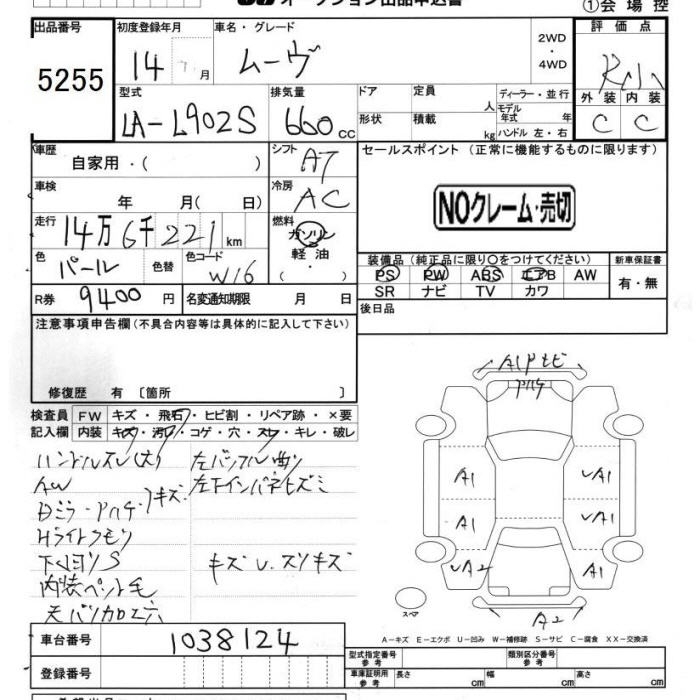 オークション出品申込書
①会場控
出品番号
5255
初度登録年月
14 月
車名・グレード
ムーヴ
2WD
・
4WD
評価点
外装 内装
C C
型式
LA-L902S
排気量
660 cc
ドア
定員 人
ディーラー・並行
モデル年式 年
形状
積載 kg
ハンドル 左・右
車歴
自家用・( )
シフト
AT
車検
年 月( 日)
冷房
AC
走行
14万6千221km
燃料
ガソリン
軽油
( ・ )
色
パール
色替
色コード
W16
R券
9400円
名変通知期限 月 日
セールスポイント (正常に機能するものに限ります)
NOクレーム・売切
装備品 (純正品に限り○をつけてください)
新車保証書
PS PW ABS エアB AW
有・無
SR ナビ TV カワ
後日品
注意事項申告欄 (不具合内容等は具体的に記入して下さい)
修復歴 有 〔箇所 〕
検査員記入欄
FW キズ・飛石・ヒビ割・リペア跡・×要
内装 キズ・汚れ・コゲ・穴・スレ・キレ・破レ
ハンドルスレ(大) 左バッフル曲り
AW
キズ 左下インパネヒズミ
Dミラー・アハゲ
Hライトクモリ
下回りS キズU、スリキズ
内装ペット毛
天バリカロエ穴
A1Pヒビ
アハゲ
A1
A1
A1
A1
A2
A1
A2
スペア
A-キズ E-エクボ U-凹み W-補修跡 S-サビ C-腐食 XX-交換済
車台番号
1038124
登録番号
型式指定番号 参考
類別区分番号 参考
車庫証明用 参考
長さ cm
幅 cm
高さ cm